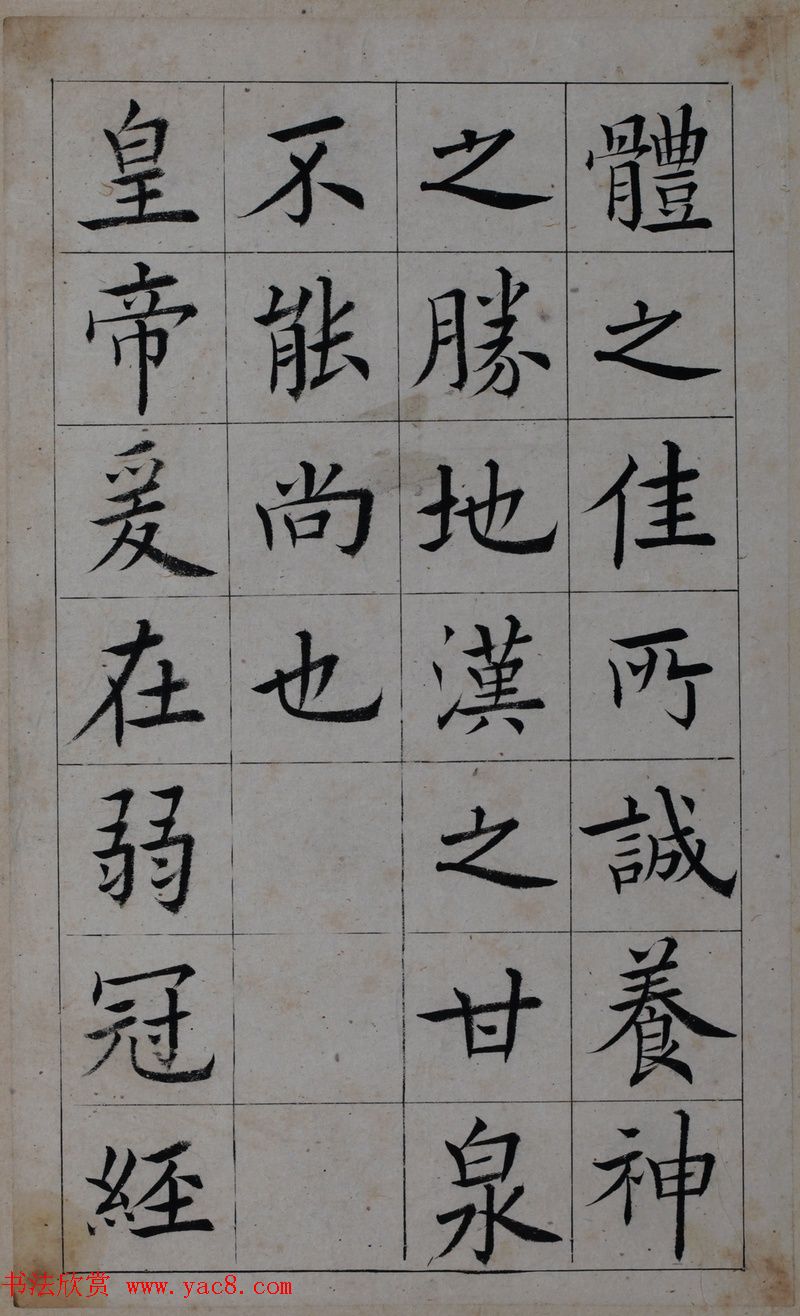 體之佳所誠養神
之勝地漢之甘泉
不能尚也
皇帝爰在弱冠經
书法欣赏 www.yac8.com